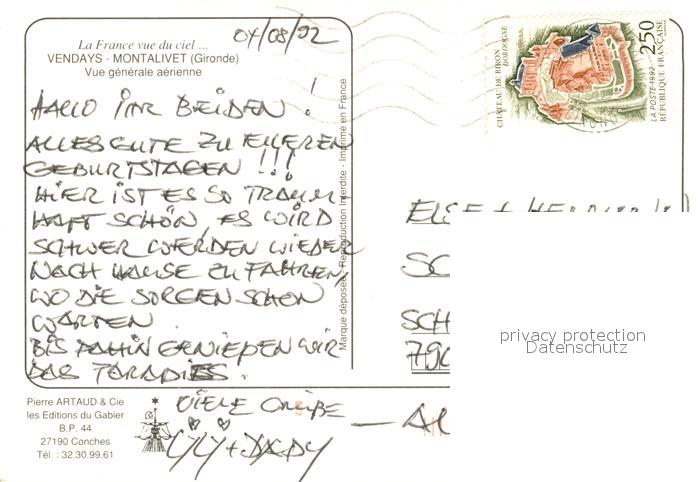 La France vue du ciel ...
VENDAYS - MONTALIVET (Gironde)
Vue générale aérienne
04/08/92
HALLO IHR BEIDEN!
ALLES GUTE ZU EUEREN
GEBURTSTAGEN!!!
HIER IST ES SO TRAUM-
HAFT SCHÖN, ES WIRD
SCHWER WERDEN WIEDER
NACH HAUSE ZU FAHREN,
WO DIE SORGEN SCHON
WARTEN.
BIS DAHIN GENIEßEN WIR
DAS PARADIES.
VIELE GRÜßE
LILY + DADY
Marque déposée - Reproduction Interdite - Imprimé en France
Pierre ARTAUD & Cie
les Editions du Gabier
B.P. 44
27190 Conches
Tél. : 32.30.99.61
CHÂTEAU DE BIRON
DORDOGNE
2,50
LA POSTE 1992
RÉPUBLIQUE FRANÇAISE
ELSE +
SC
SCH
790
privacy protection
Datenschutz